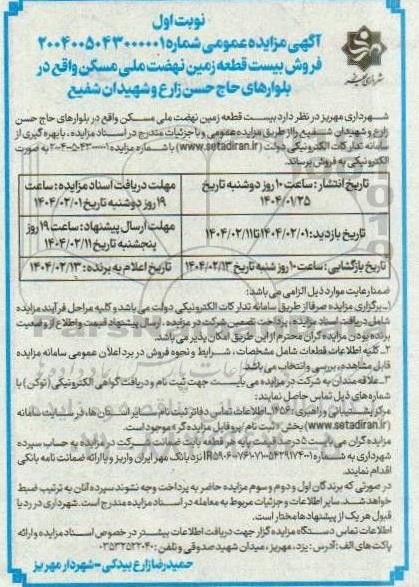 نوبت اول
آگهی مزایده عمومی شماره ۲۰۰۴۰۰۵۰۴۳۰۰۰۰۰۱
فروش بیست قطعه زمین نهضت ملی مسکن واقع در
بلوارهای حاج حسن زارع و شهیدان شفیع
شهرداری مهریز در نظر دارد بیست قطعه زمین نهضت ملی مسکن واقع در بلوارهای حاج حسن
زارع و شهیدان شفیع را از طریق مزایده عمومی و با جزئیات مندرج در اسناد مزایده، با بهره گیری از
سامانه تدارکات الکترونیکی دولت (www.setadiran.ir) با شماره مزایده ۲۰۰۴۰۰۵۰۴۳۰۰۰۰۰۱ به صورت
الکترونیکی به فروش برساند.
تاریخ انتشار: ساعت ۱۰ روز دوشنبه تاریخ ۱۴۰۴/۰۱/۲۵
مهلت دریافت اسناد مزایده: ساعت ۱۹ روز دوشنبه تاریخ ۱۴۰۴/۰۲/۰۱
تاریخ بازدید: ۱۴۰۴/۰۲/۰۱ تا ۱۴۰۴/۰۲/۱۱
مهلت ارسال پیشنهاد: ساعت ۱۹ روز پنجشنبه تاریخ ۱۴۰۴/۰۲/۱۱
تاریخ بازگشایی: ساعت ۱۰ روز شنبه تاریخ ۱۴۰۴/۰۲/۱۳
تاریخ اعلام به برنده: ۱۴۰۴/۰۲/۱۳
ضمنا رعایت موارد ذیل الزامی می باشد:
۱-برگزاری مزایده صرفا از طریق سامانه تدارکات الکترونیکی دولت می باشد و کلیه مراحل فرآیند مزایده
شامل دریافت اسناد مزایده، پرداخت تضمین شرکت در مزایده، ارسال پیشنهاد قیمت و اطلاع از وضعیت
برنده بودن مزایده گران محترم از این طریق امکان پذیر می باشد.
۲-کلیه اطلاعات قطعات شامل مشخصات، شرایط و نحوه فروش در برد اعلان عمومی سامانه مزایده
قابل مشاهده، بررسی و انتخاب می باشد.
۳-علاقه مندان به شرکت در مزایده می بایست جهت ثبت نام و دریافت گواهی الکترونیکی (توکن) با
شماره های ذیل تماس حاصل نمایند:
مرکز پشتیبانی و راهبری: ۱۴۵۶-اطلاعات تماس دفاتر ثبت نام سایر استان ها، در سایت سامانه
(www.setadiran.ir) بخش «ثبت نام/پروفایل مزایده گر» موجود است.
مزایده گران می بایست ۵ درصد قیمت پایه هر قطعه بابت ضمانت شرکت در مزایده به حساب سپرده
شهرداری به شماره نزد بانک مهر ایران واریز و یا ارائه ضمانت نامه بانکی
اقدام نمایند.
در صورتی که برندگان اول و دوم و سوم مزایده حاضر به پرداخت وجه نشوند سپرده آنان به ترتیب ضبط
خواهد شد. سایر اطلاعات و جزئیات مربوط به معامله در اسناد مزایده مندرج است. شهرداری در رد یا
قبول هر یک از پیشنهادها مختار است.
اطلاعات تماس دستگاه مزایده گزار جهت دریافت اطلاعات بیشتر در خصوص اسناد مزایده و ارائه
پاکت های الف: آدرس: یزد، مهریز، میدان شهید صدوقی و تلفن: ۰۳۵۳۲۵۲۲۰۴۰
حمیدرضا زارع بیدکی - شهردار مهریز